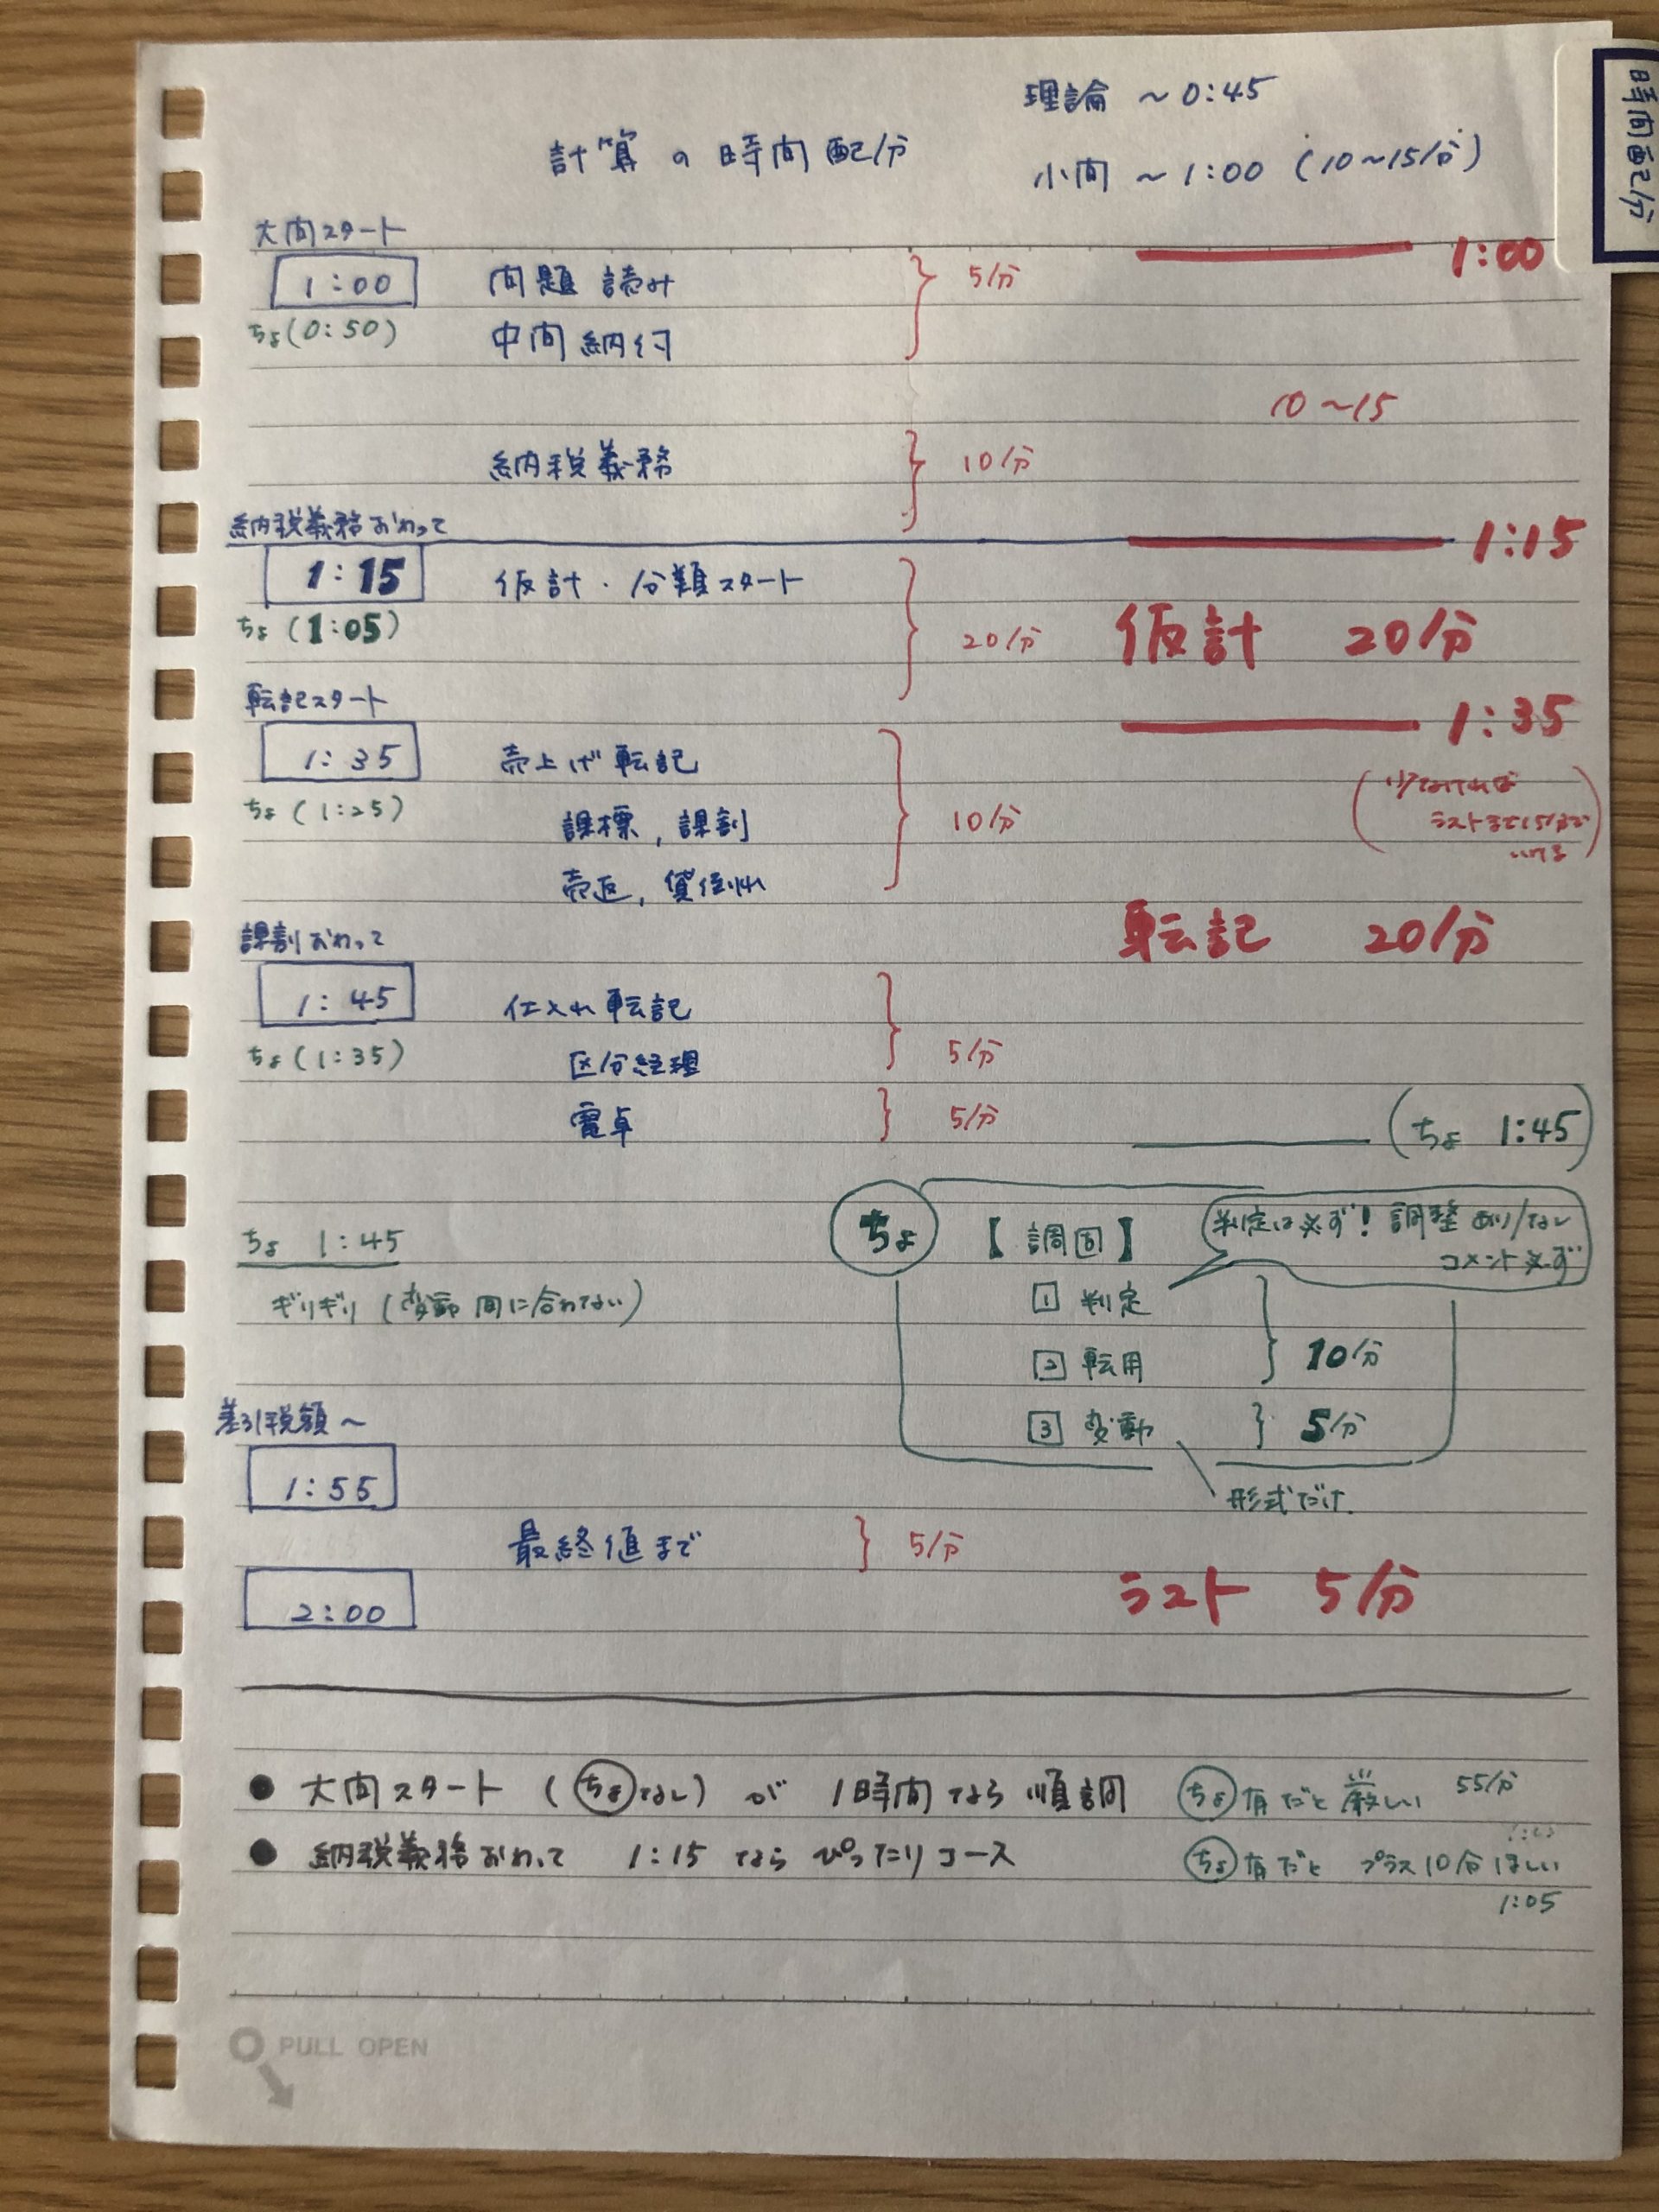 時間配分
理論 ~ 0:45
計算の時間配分
小問 ~ 1:00 (10~15分)
大問スタート
1:00
1:00 問題読み 5分
ちょ(0:50) 中間納付
10~15
納税義務 10分
納税義務おわって
1:15
1:15 仮計・分類スタート
ちょ(1:05) 20分 仮計 20分
転記スタート
1:35
1:35 売上げ転記
(少なければ
ちょ(1:25) 課標, 課割 10分 ラストまで15分で
いける)
売返, 貸倒れ
課割おわって 転記 20分
1:45 仕入れ転記
ちょ(1:35) 区分経理 5分
電卓 5分 (ちょ 1:45)
ちょ 【調固】 判定は必ず! 調整あり/なし
コメント必ず
ちょ 1:45
ギリギリ (変動間に合わない)
1 判定
2 転用 10分
3 変動 5分
差引税額~
1:55
形式だけ.
最終値まで 5分
ラスト 5分
2:00
● 大問スタート (ちょなし) が 1時間なら順調 ちょ有だと厳しい 55分
● 納税義務おわって 1:15 ならぴったりコース ちょ有だと プラス10分ほしい
1:05
PULL OPEN